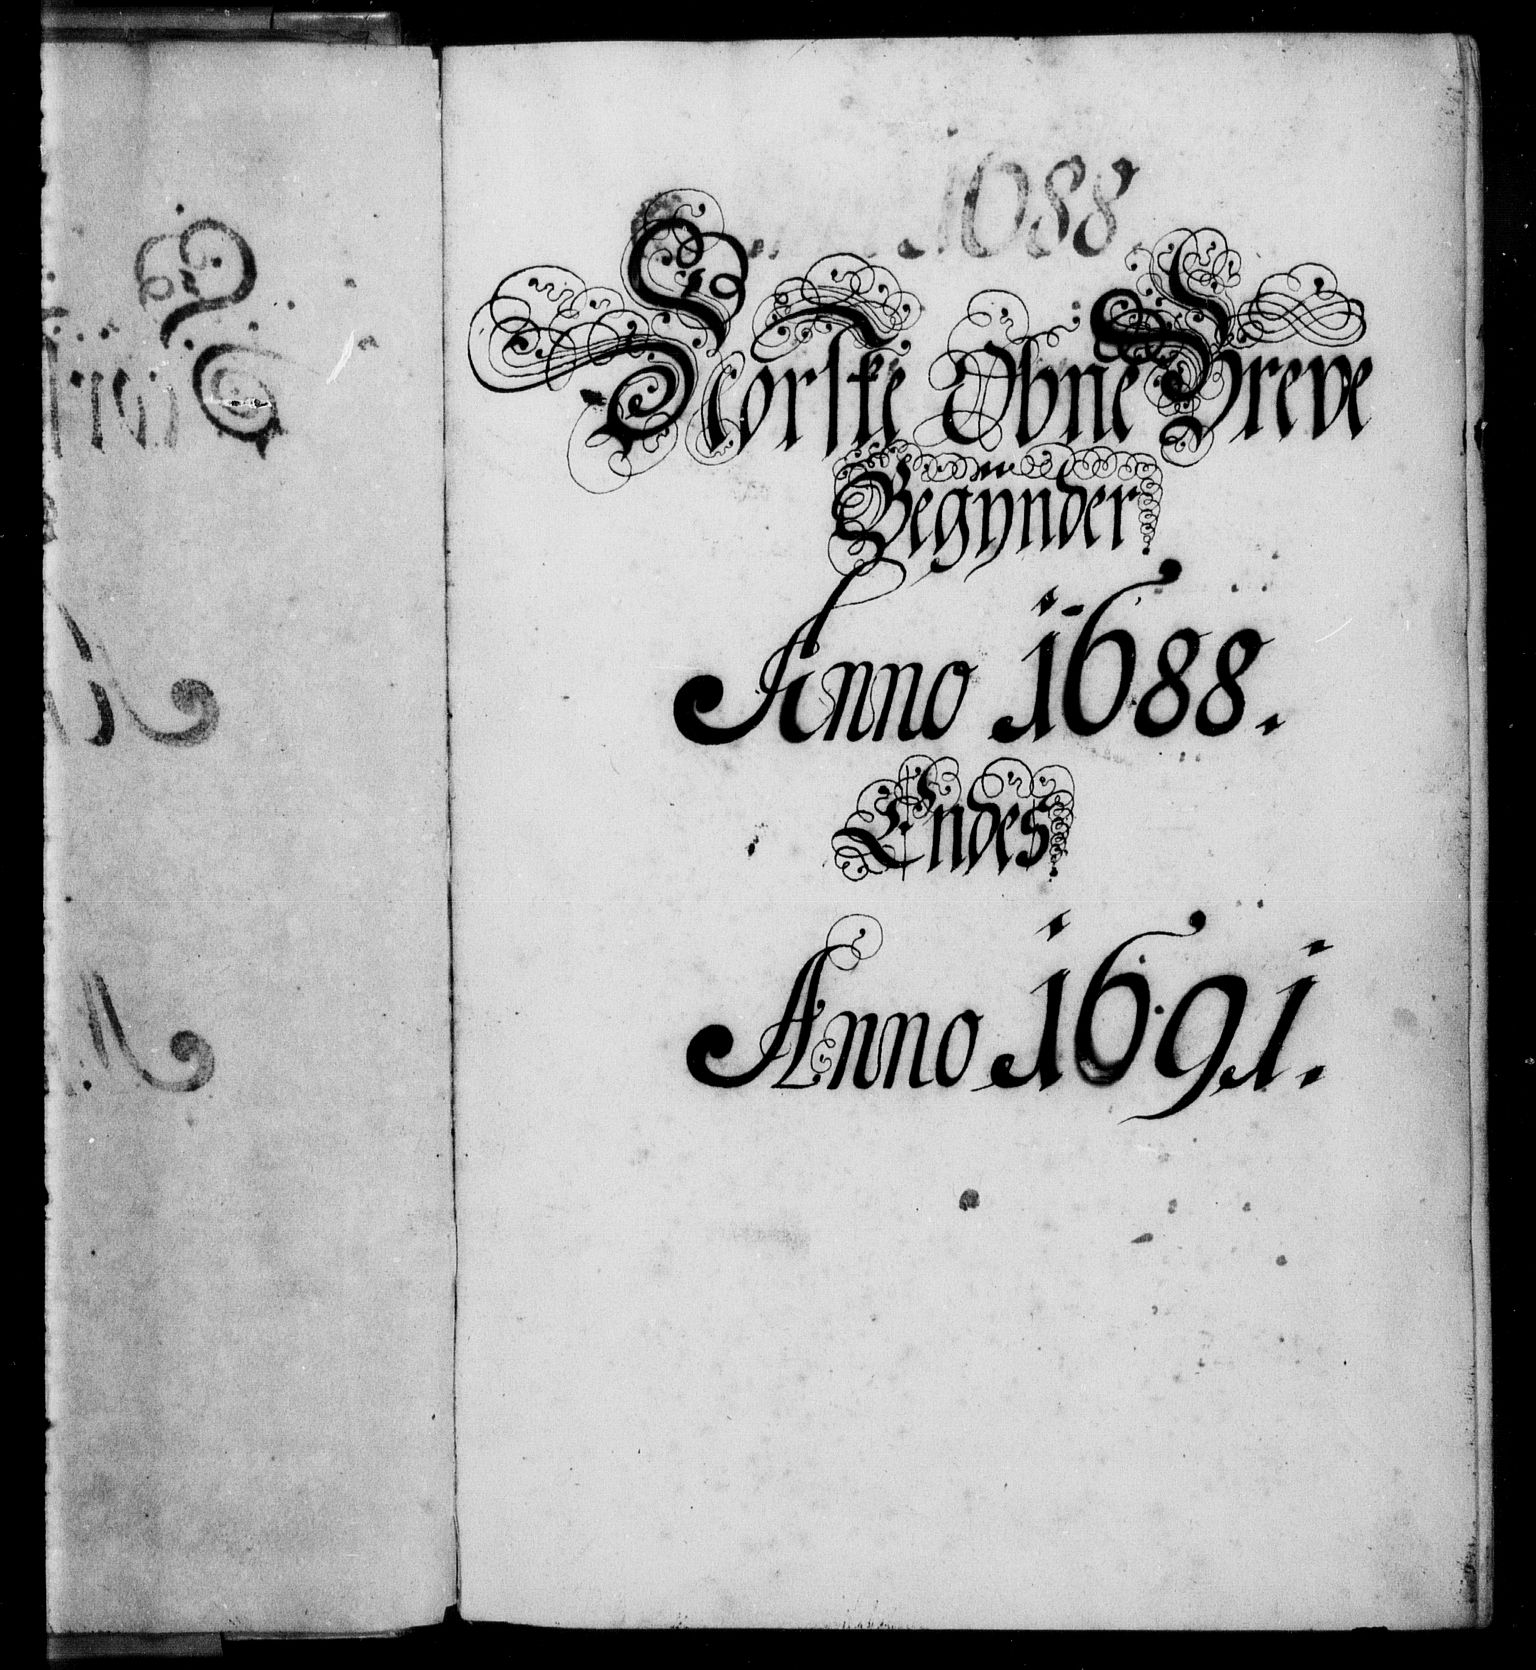 1688.
Norske Obne Breve
Begÿnder
Anno 1688.
Endes
Anno 1691.